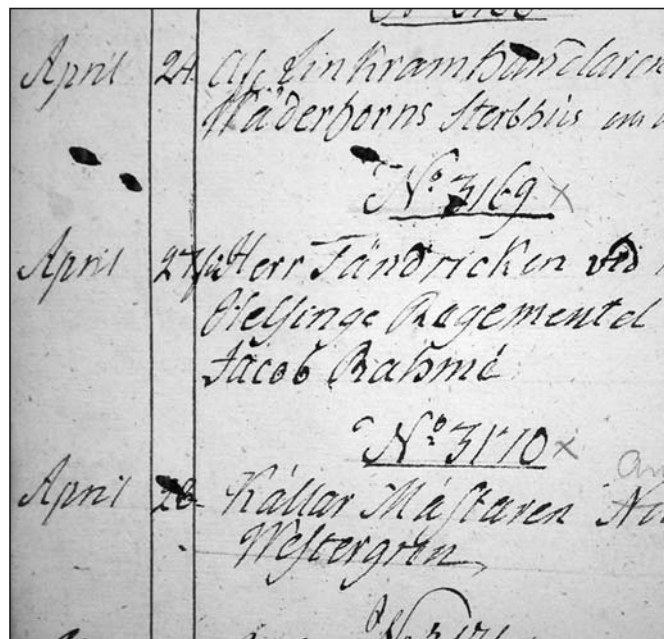 April 24 Af Linkramhandlaren
Wäderhorns Sterbhus
No 3169 x
April 27 Herr Fändricken vid
Helsinge Regementet
Jacob Rahmé
No 3170 x
April 28 Källar Mästaren
Westergren